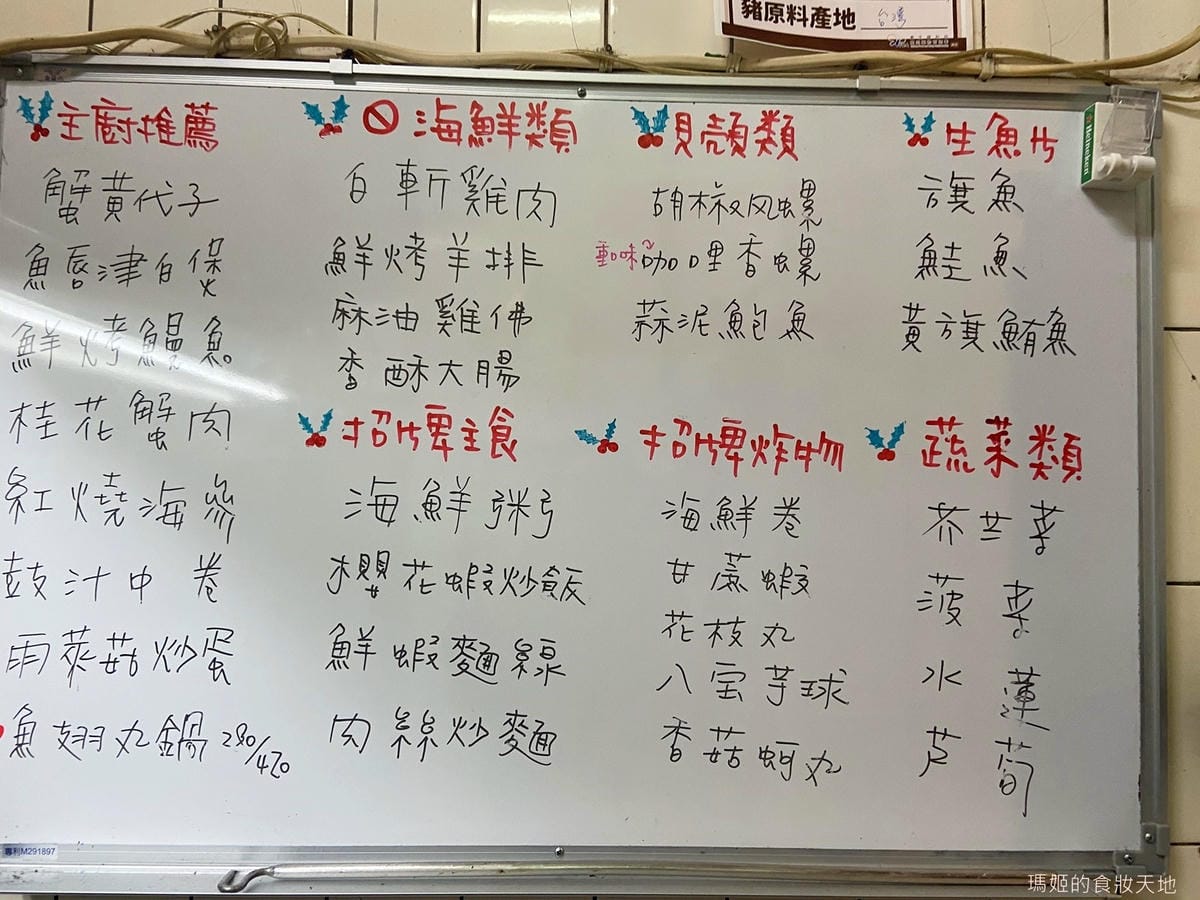 豬原料產地 台灣
主廚推薦
蟹黃代子
魚唇津白煲
鮮烤鰻魚
桂花蟹肉
紅燒海參
鼓汁中卷
雨萊菇炒蛋
魚翅丸鍋 280/420
🚫海鮮類
白斬雞肉
鮮烤羊排
麻油雞佛
香酥大腸
招牌主食
海鮮粥
櫻花蝦炒飯
鮮蝦麵線
肉絲炒麵
貝殼類
胡椒风螺
重味咖哩香螺
蒜泥鮑魚
招牌炸物
海鮮卷
甘蔗蝦
花枝丸
八宝芋球
香菇蚵丸
生魚片
旗魚
鮭魚
黃旗鮪魚
蔬菜類
芥兰菜
菠菜
水蓮
芦荀
Heineken
專利M291897
瑪姬的食妝天地